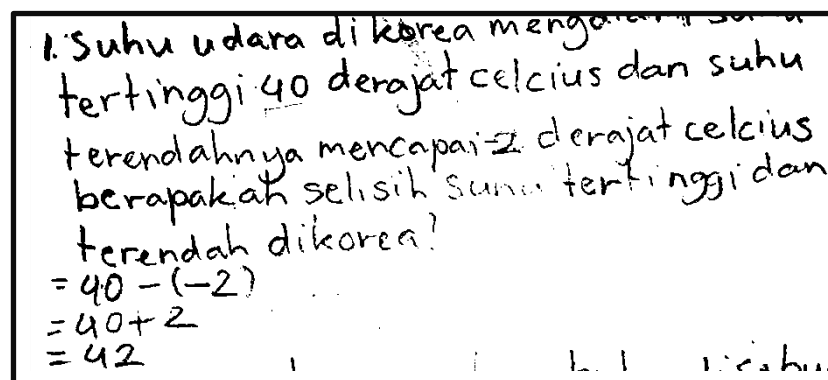 1. Suhu udara di korea
tertinggi 40 derajat celcius dan suhu
terendahnya mencapai -2 derajat celcius
berapakah selisih suhu tertinggi dan
terendah dikorea?
= 40 - (-2)
= 40 + 2
= 42